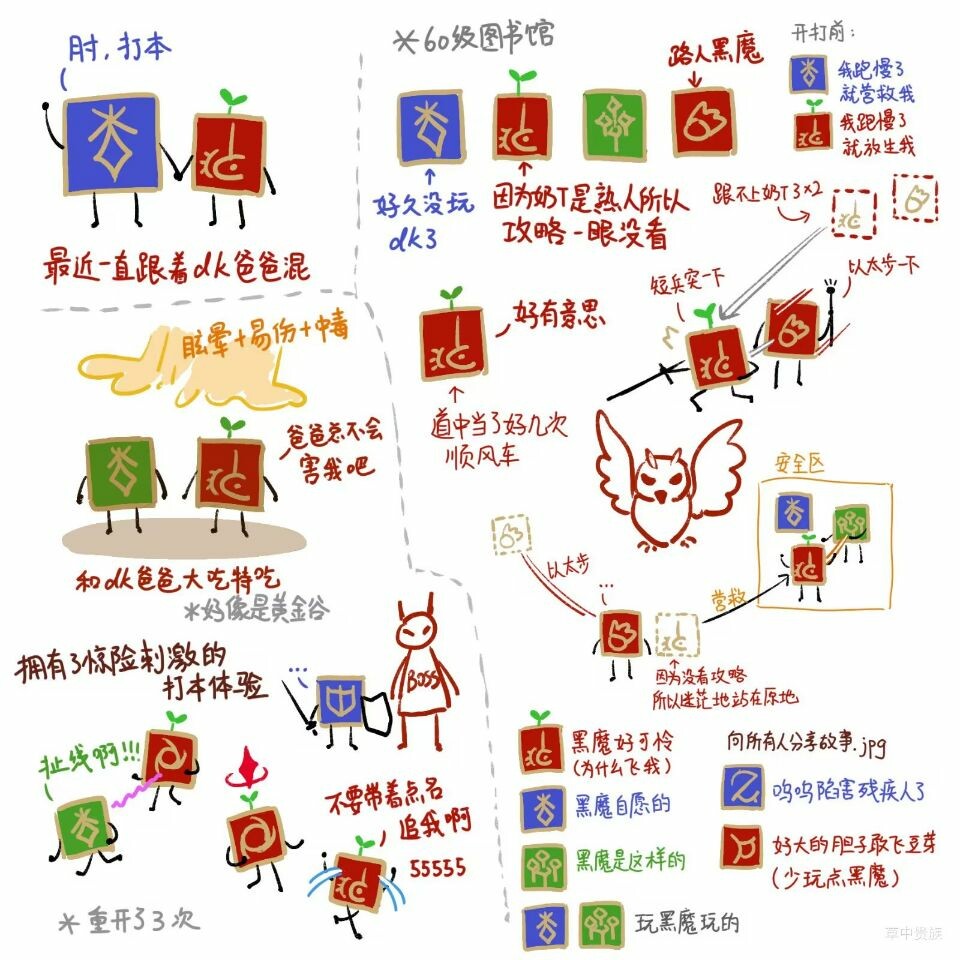 肘,打本
最近一直跟着dk爸爸混
眩晕+易伤+中毒
爸爸总不会
害我吧
和dk爸爸大吃特吃
*好像是黄金谷
拥有了惊险刺激的
打本体验
扯线啊!!!
...
BOSS
不要带着点名
追我啊
55555
*重开了3次
*60级图书馆
路人黑魔
好久没玩
dk3
因为奶T是熟人所以
攻略一眼没看
开打前:
我跑慢了
就营救我
我跑慢了
就放生我
跟不上奶T3×2
短兵突一下
以太步一下
好有意思
道中当了好几次
顺风车
安全区
以太步
...
营救
因为没看攻略
所以迷茫地站在原地
黑魔好可怜
(为什么飞我)
黑魔自愿的
黑魔是这样的
玩黑魔玩的
向所有人分享故事.jpg
呜呜陷害残疾人了
好大的胆子敢飞豆芽
(少玩点黑魔)
草中贵族